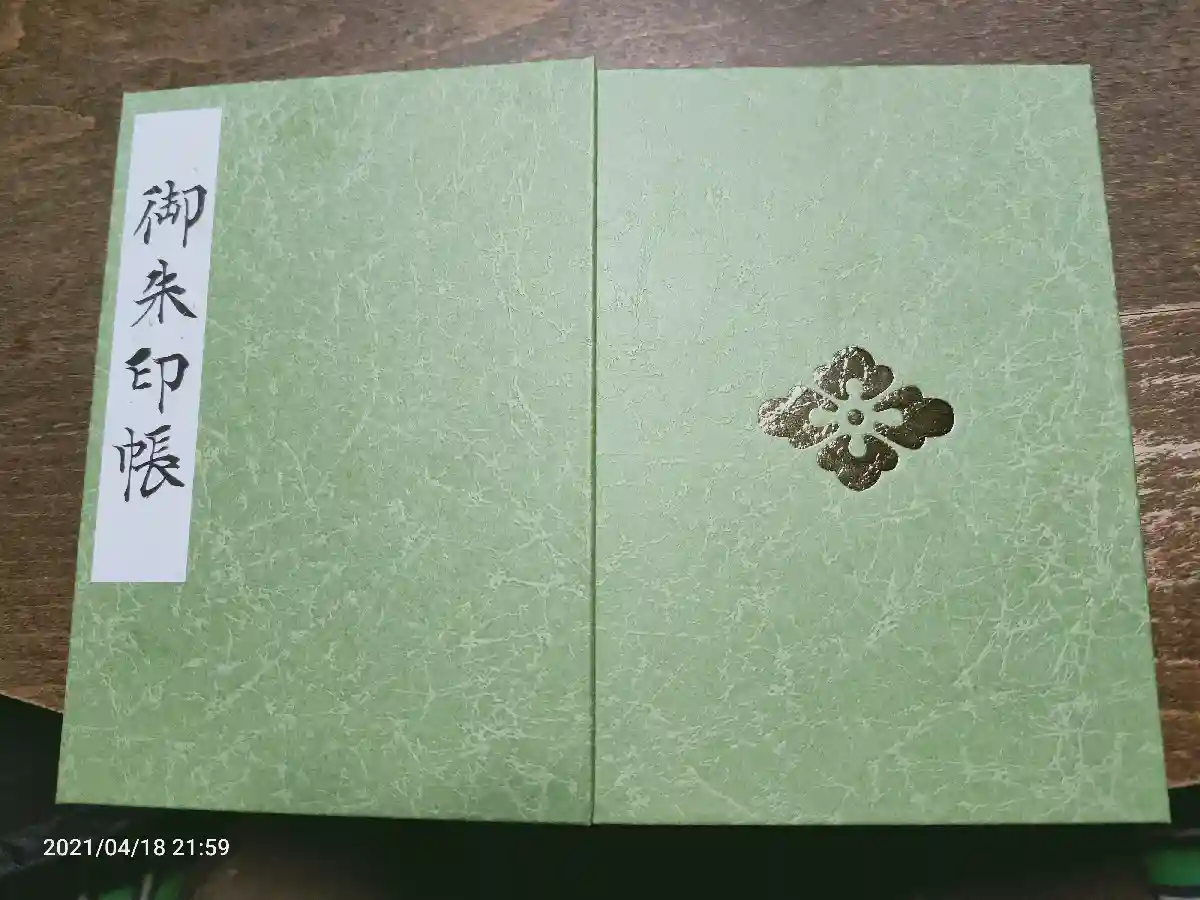 御朱印帳
2021/04/18 21:59